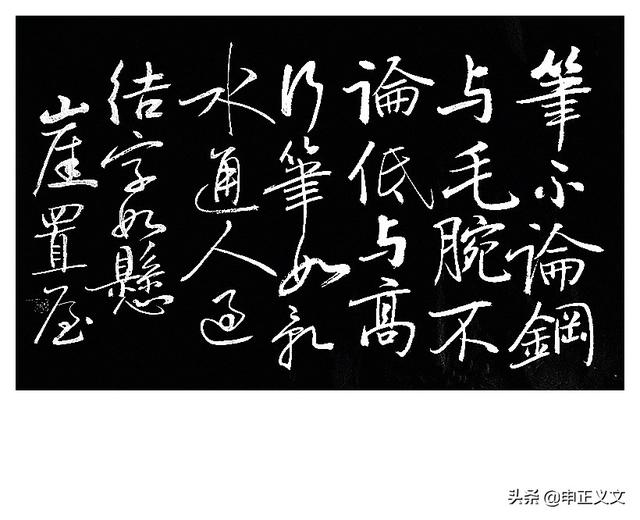 筆不論鋼
与毛腕不
論低与高
行筆如乱
水通人過
结字如懸
崖置屋
头条 @申正义文